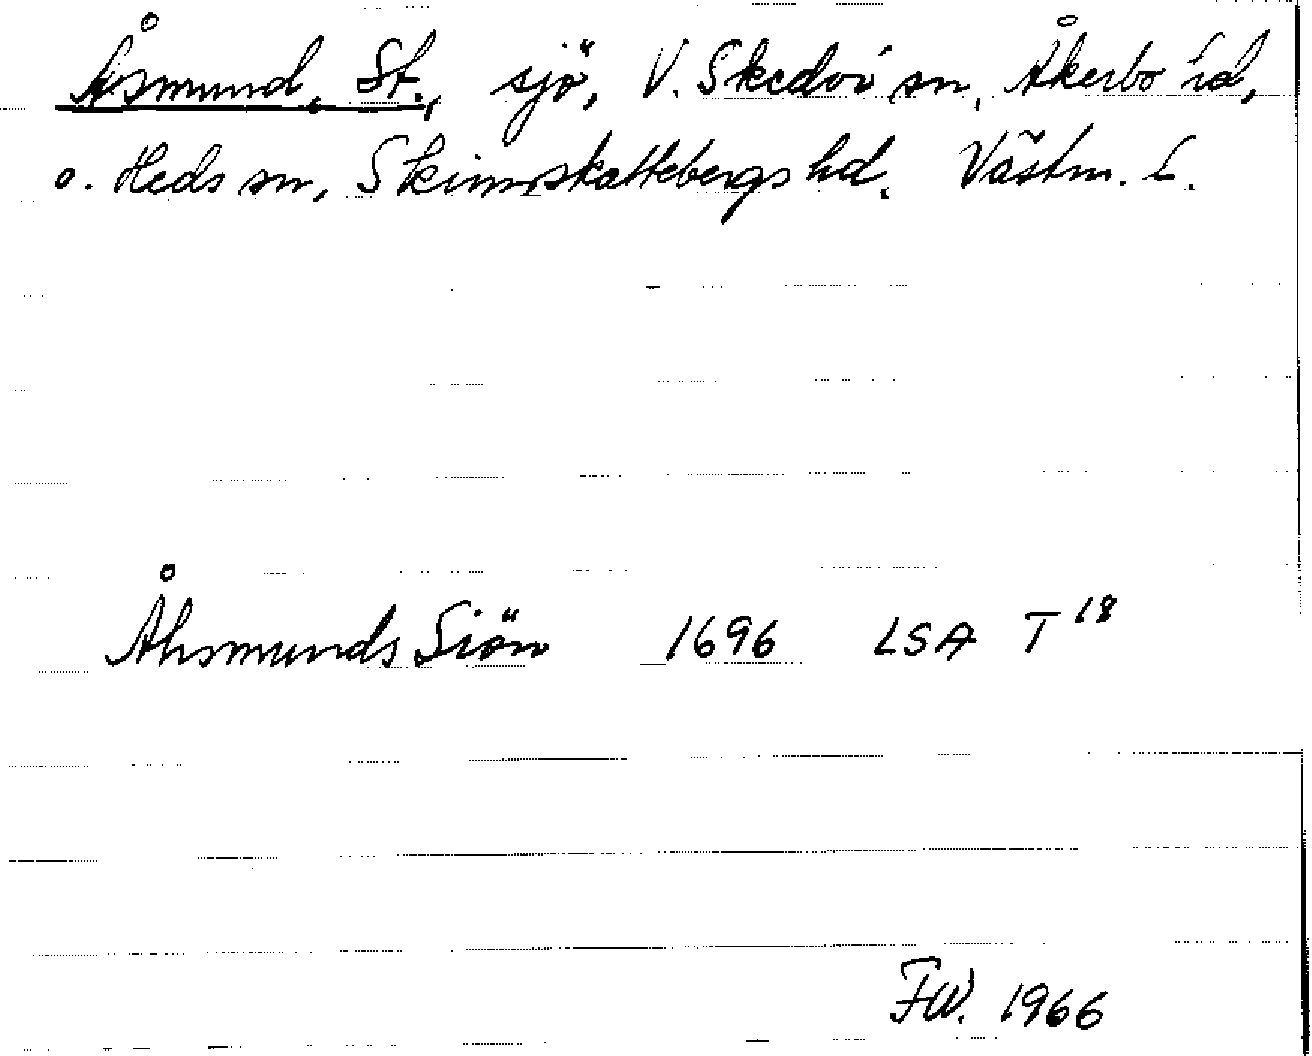 Åsmund, St., sjö, V. Skedvi sn, Åkerbo hd,
o. Heds sn, Skinnskattebergs hd. Västm. l.
Åhsmunds Siön 1696 LSA T 18
FW. 1966